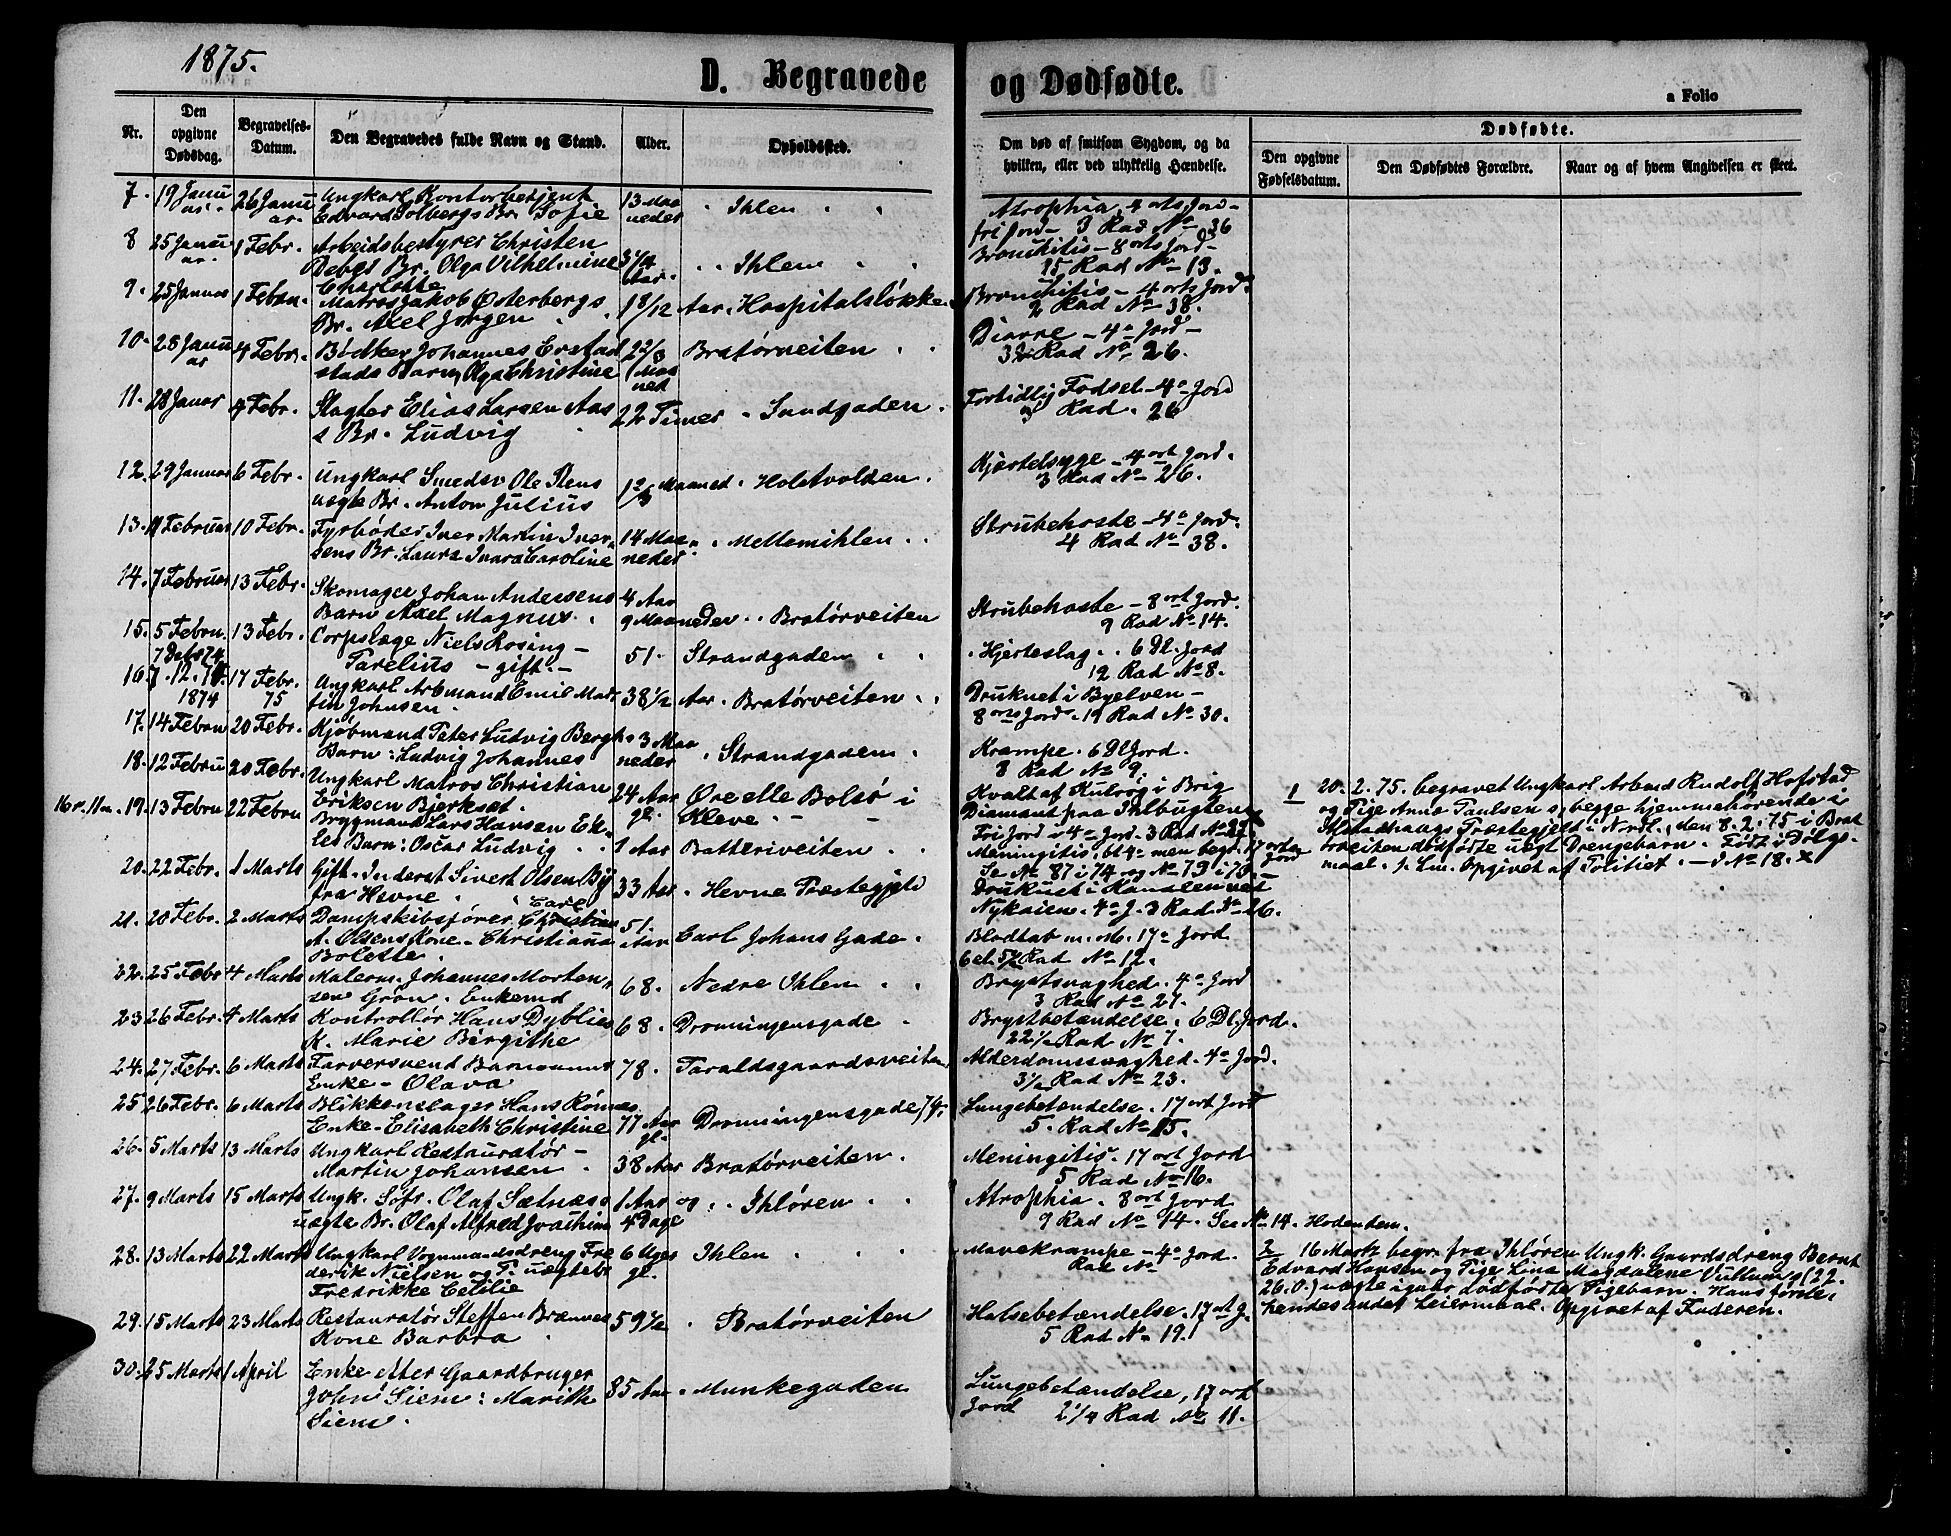 1875.
D. Begravede og Dødfødte.
a Folio
Nr.
Den opgivne Dødsdag.
Begravelses-Datum.
Den Begravedes fulde Navn og Stand.
Alder.
Opholdssted.
Om død af smitsom Sygdom, og da hvilken, eller ved ulykkelig Hændelse.
Dødfødte.
Den opgivne Fødselsdatum.
Den Dødfødtes Forældre.
Naar og af hvem Angivelsen er skeet.
7. 19 Januar. 26 Januar. Ungkarl Kontorbetjent 13 Maaneder Ihlen Atrophia, 4 orts Jord-
Edvard Solbergs Br. Sofie fri Jord - 3 Rad No 36
8 25 Januar. 1 Febr. Arbeidsbestyrer Christen 3 1/4 Aar. Ihlen Bronchitis - 8 orts Jord-
Debes Br. Olga Vilhelmine 15 Rad No 13.
Charlotte
9. 25 Januar 1 Febru. Matros Jakob Østerbergs 1 8/12 Aar. Hospitalsløkke Bronchitis - 4 orts Jord.
Br. Axel Jørgen 2 Rad No 38.
10. 28 Januar 4 Febr. Bødker Johannes Erstad 2 2/3 Maaned Bratørveiten Diarre - 4 o Jord -
stads Barn, Olga Christine 3 1/2 Rad No 26.
11. 28 Januar 4 Febr. Slagter Elias Larsen Aas 22 Timer Sandgaden. Fortidlig Fødsel - 4 o Jord
s Br. Ludvig Rad. 26
12. 29 Januar 6 Febr. Ungkarl Smedsv Ole Stens 1 2/3 Maaned. Holstvolden. Kjertelsyge - 4 ort Jord.
uægte Br. Anton Julius 3 Rad No 26.
13. Februar 10 Febr. Fyrbøder Iver Martin Iver- 14 Maaneder. Mellemihlen. Strubehoste - 4 o Jord.
sens Br. Laura Inara Caroline 4 Rad No 38.
14. 7 Februar 13 Febr. Skomager Johan Andersens 4 Aar Strubehoste - 8 ort Jord.
Barn Axel Magnus. 9 Maaneder. Bratørveiten 9 Rad No 14.
15. 5 Febru 13 Febr. Corpslæge Niels Rosing - 51. Strandgaden Hjerteslag. 6 Dl. Jord
Parelius - gift. - 12 Rad No 8.
16. 7.12.74. 17 Febr. Ungkarl Arbmand Emil Mar- 38 1/2 Aar. Bratørveiten Druknet i Byelven -
1874 75 tin Johnsen. 8 orts Jord. 19 Rad No 30.
17. 14 Febru 20 Febr. Kjøbmand Peter Ludvig Bergh. 3 Maaneder Strandgaden. Krampe. 6 Dl Jord.
Barn: Ludvig Johannes 8 Rad No 9.
18. 12 Febru 20 Febr. Ungkarl Matros Christian 24 Aar gl. Øre elle Bolsø i Kleve. Kvalt af Kulrøg i Brig
Eriksen Bjerkset. Diamant paa Ihlbugten x
Fri Jord i 4 o Jord. 3 Rad No 27.
19. 13 Febru 22 Febru Brygmand Lars Hansen Ek- 1 Aar Batteriveiten. Meningitis, bl 4 o men begr. 17 orts Jord
les Barn: Oscar Ludvig Se No 87 i 74 og No 79 i 70.
20. 22 Febr. 1 Marts Gift. Inderst Sivert Olsen By 33 Aar. Hevne Præstegjeld Druknet i Kanalen ved
fra Hevne. Nykaien. 4 o J. 3 Rad No 26.
21. 20 Febr. 2 Marts Dampskibsfører Carl Christian 51. Aar Carl Johans Gade. Blodtab m. M. 17 o Jord
A. Olsens Kone. Christiana Bolette. 5 1/2 Rad No 12.
22. 25 Febr 4 Marts Malerm. Johannes Morten- 68. Nedre Ihlen Brystsvaghed. 4 o Jord
sen Grøn. Enkemd 3 Rad No 27.
23 26 Febr. 4 Marts Kontrollør Hans Dyblies 68. Dronningensgade Brystbetændelse. 6 Dl. Jord.
K. Marie Birgithe 22 1/2 Rad No 7.
24. 27 Febr. 6 Marts Farversvend Barmanns 78. Taraldsgaardsveiten Alderdomssvaghed. 4 o Jord.
Enke - Olava 3 1/2 Rad No 23.
25 26 Febr. 6 Marts Blikkenslager Hans Rømos 77 Aar gl. Dronningensgade 74. Lungebetændelse. 17 ort Jord
Enke. Elisabeth Christine 5. Rad No 15.
26. 5 Marts 13 Marts Ungkarl Restauratør - 38 Aar Bratørveiten. Meningitis. 17 ort Jord
Martin Johansen 5 Rad No 16.
27. 9 Marts 15 Marts Ungk. Sofr. Olaf Sætnæss 1 Aar og 4 Dage Ihløren Atrophia. 8 ort Jord
uægte Br. Olaf Alfred Joachim 9 Rad No 14. See No 14. Hodendem.
28. 13 Marts 22 Marts Ungkarl Vognmandsdreng Fre 6 Uger gl. Ihlen Mavekrampe - 4 o Jord.
derik Nielsen og P. uægtebr Rad No
Fredrikke Cecilie
29. 15 Marts 23 Marts Restauratør Steffen Brænnes 59 1/2 Bratørveiten Halsebetændelse. 17 ort J.
Kone Barbra 5 Rad No 19.
30. 25 Marts 1 April Enke efter Gaardbruger 85 Aar. Munkegaden Lungebetændelse, 17 ort
John Siem: Marith Siem. Jord 2 1/4 Rad No 11.
1 20. 2. 75. begravet Ungkarl Arbmd Rudolf Hofstad
og Pige Anna Paulsen s, begge hjemmehørende i
Alstadhaugs Præstegjeld i Nordl., den 8. 2. 75 i Brat
ørveiten dødfødte uægt Drengebarn. Født i Dølgs-
maal. Opgivet af Politiet. - No 18. x
2 16 Marts begr. fra Ihløren Ungk. Gaardsdreng Bernt
Edvard Hansen og Pige Lina Magdalene Vullums (22.
26.0.) uægte igaar dødfødte Pigebarn. Hans første,
hendes andet Leiermaal. Opgivet af Faderen.